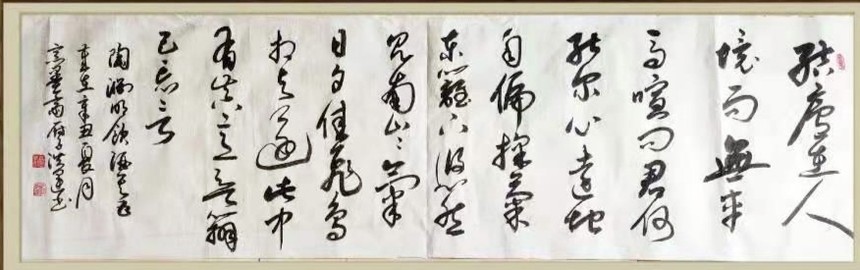 結廬在人
境而無車
馬喧問君何
能尔心遠地
自偏採菊
東籬下悠然
見南山々氣
日夕佳飛鳥
相与還此中
有真意欲辯
已忘言
陶渊明饮酒其五
岁在辛丑夏月
书